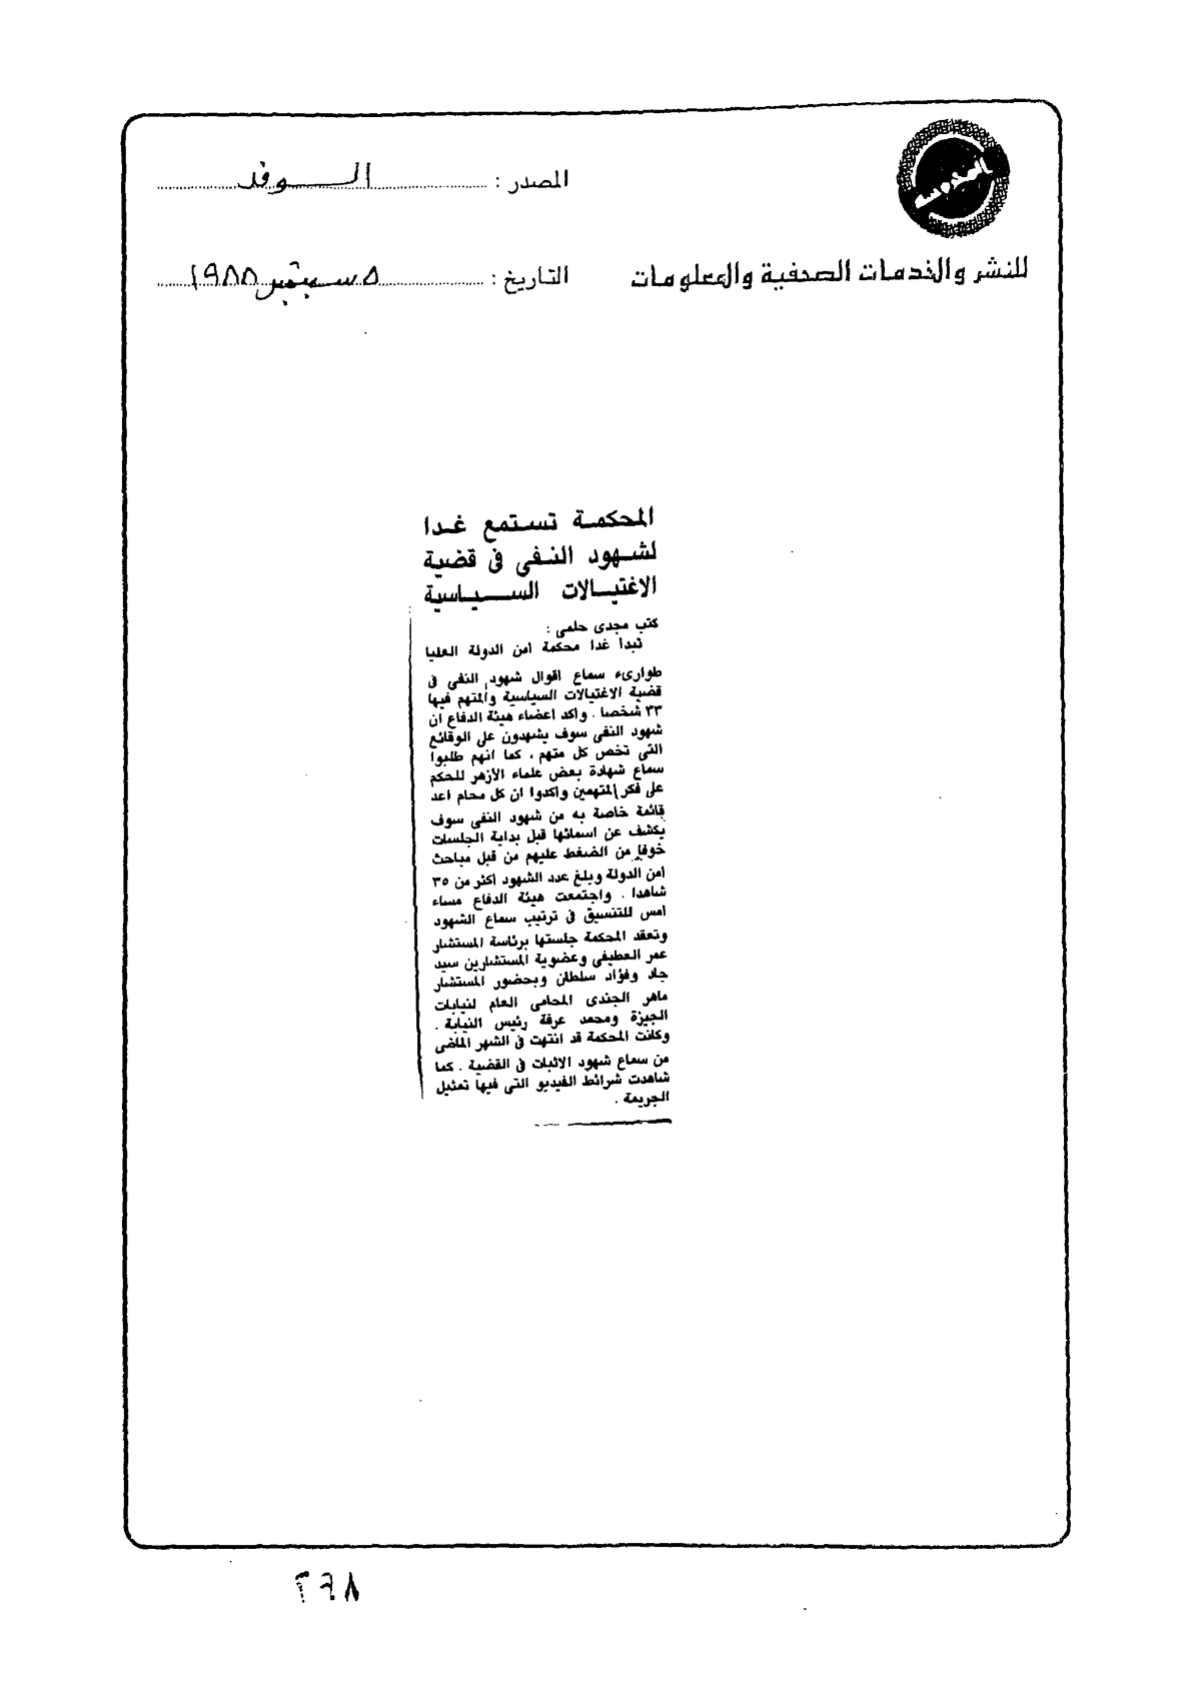 المصدر : الوفد
للنشر والخدمات الصحفية والمعلومات
التاريخ : ٥ سبتمبر ١٩٨٨
المحكمة تستمع غدا
لشهود النفى فى قضية
الاغتيالات السياسية
كتب مجدى حلمى :
تبدا غدا محكمة امن الدولة العليا
طوارىء سماع اقوال شهود النفى فى
قضية الاغتيالات السياسية والمتهم فيها
٣٣ شخصا . واكد اعضاء هيئة الدفاع ان
شهود النفى سوف يشهدون على الوقائع
التى تخص كل متهم ، كما انهم طلبوا
سماع شهادة بعض علماء الأزهر للحكم
على فكر المتهمين واكدوا ان كل محام اعد
قائمة خاصة به من شهود النفى سوف
يكشف عن اسمائها قبل بداية الجلسات
خوفا من الضغط عليهم من قبل مباحث
امن الدولة وبلغ عدد الشهود اكثر من ٣٥
شاهدا . واجتمعت هيئة الدفاع مساء
امس للتنسيق فى ترتيب سماع الشهود
وتعقد المحكمة جلستها برئاسة المستشار
عمر العطيفى وعضوية المستشارين سيد
جاد وفؤاد سلطان وبحضور المستشار
ماهر الجندى المحامى العام لنيابات
الجيزة ومحمد عرفة رئيس النيابة .
وكانت المحكمة قد انتهت فى الشهر الماضى
من سماع شهود الاثبات فى القضية . كما
شاهدت شرائط الفيديو التى فيها تمثيل
الجريمة .